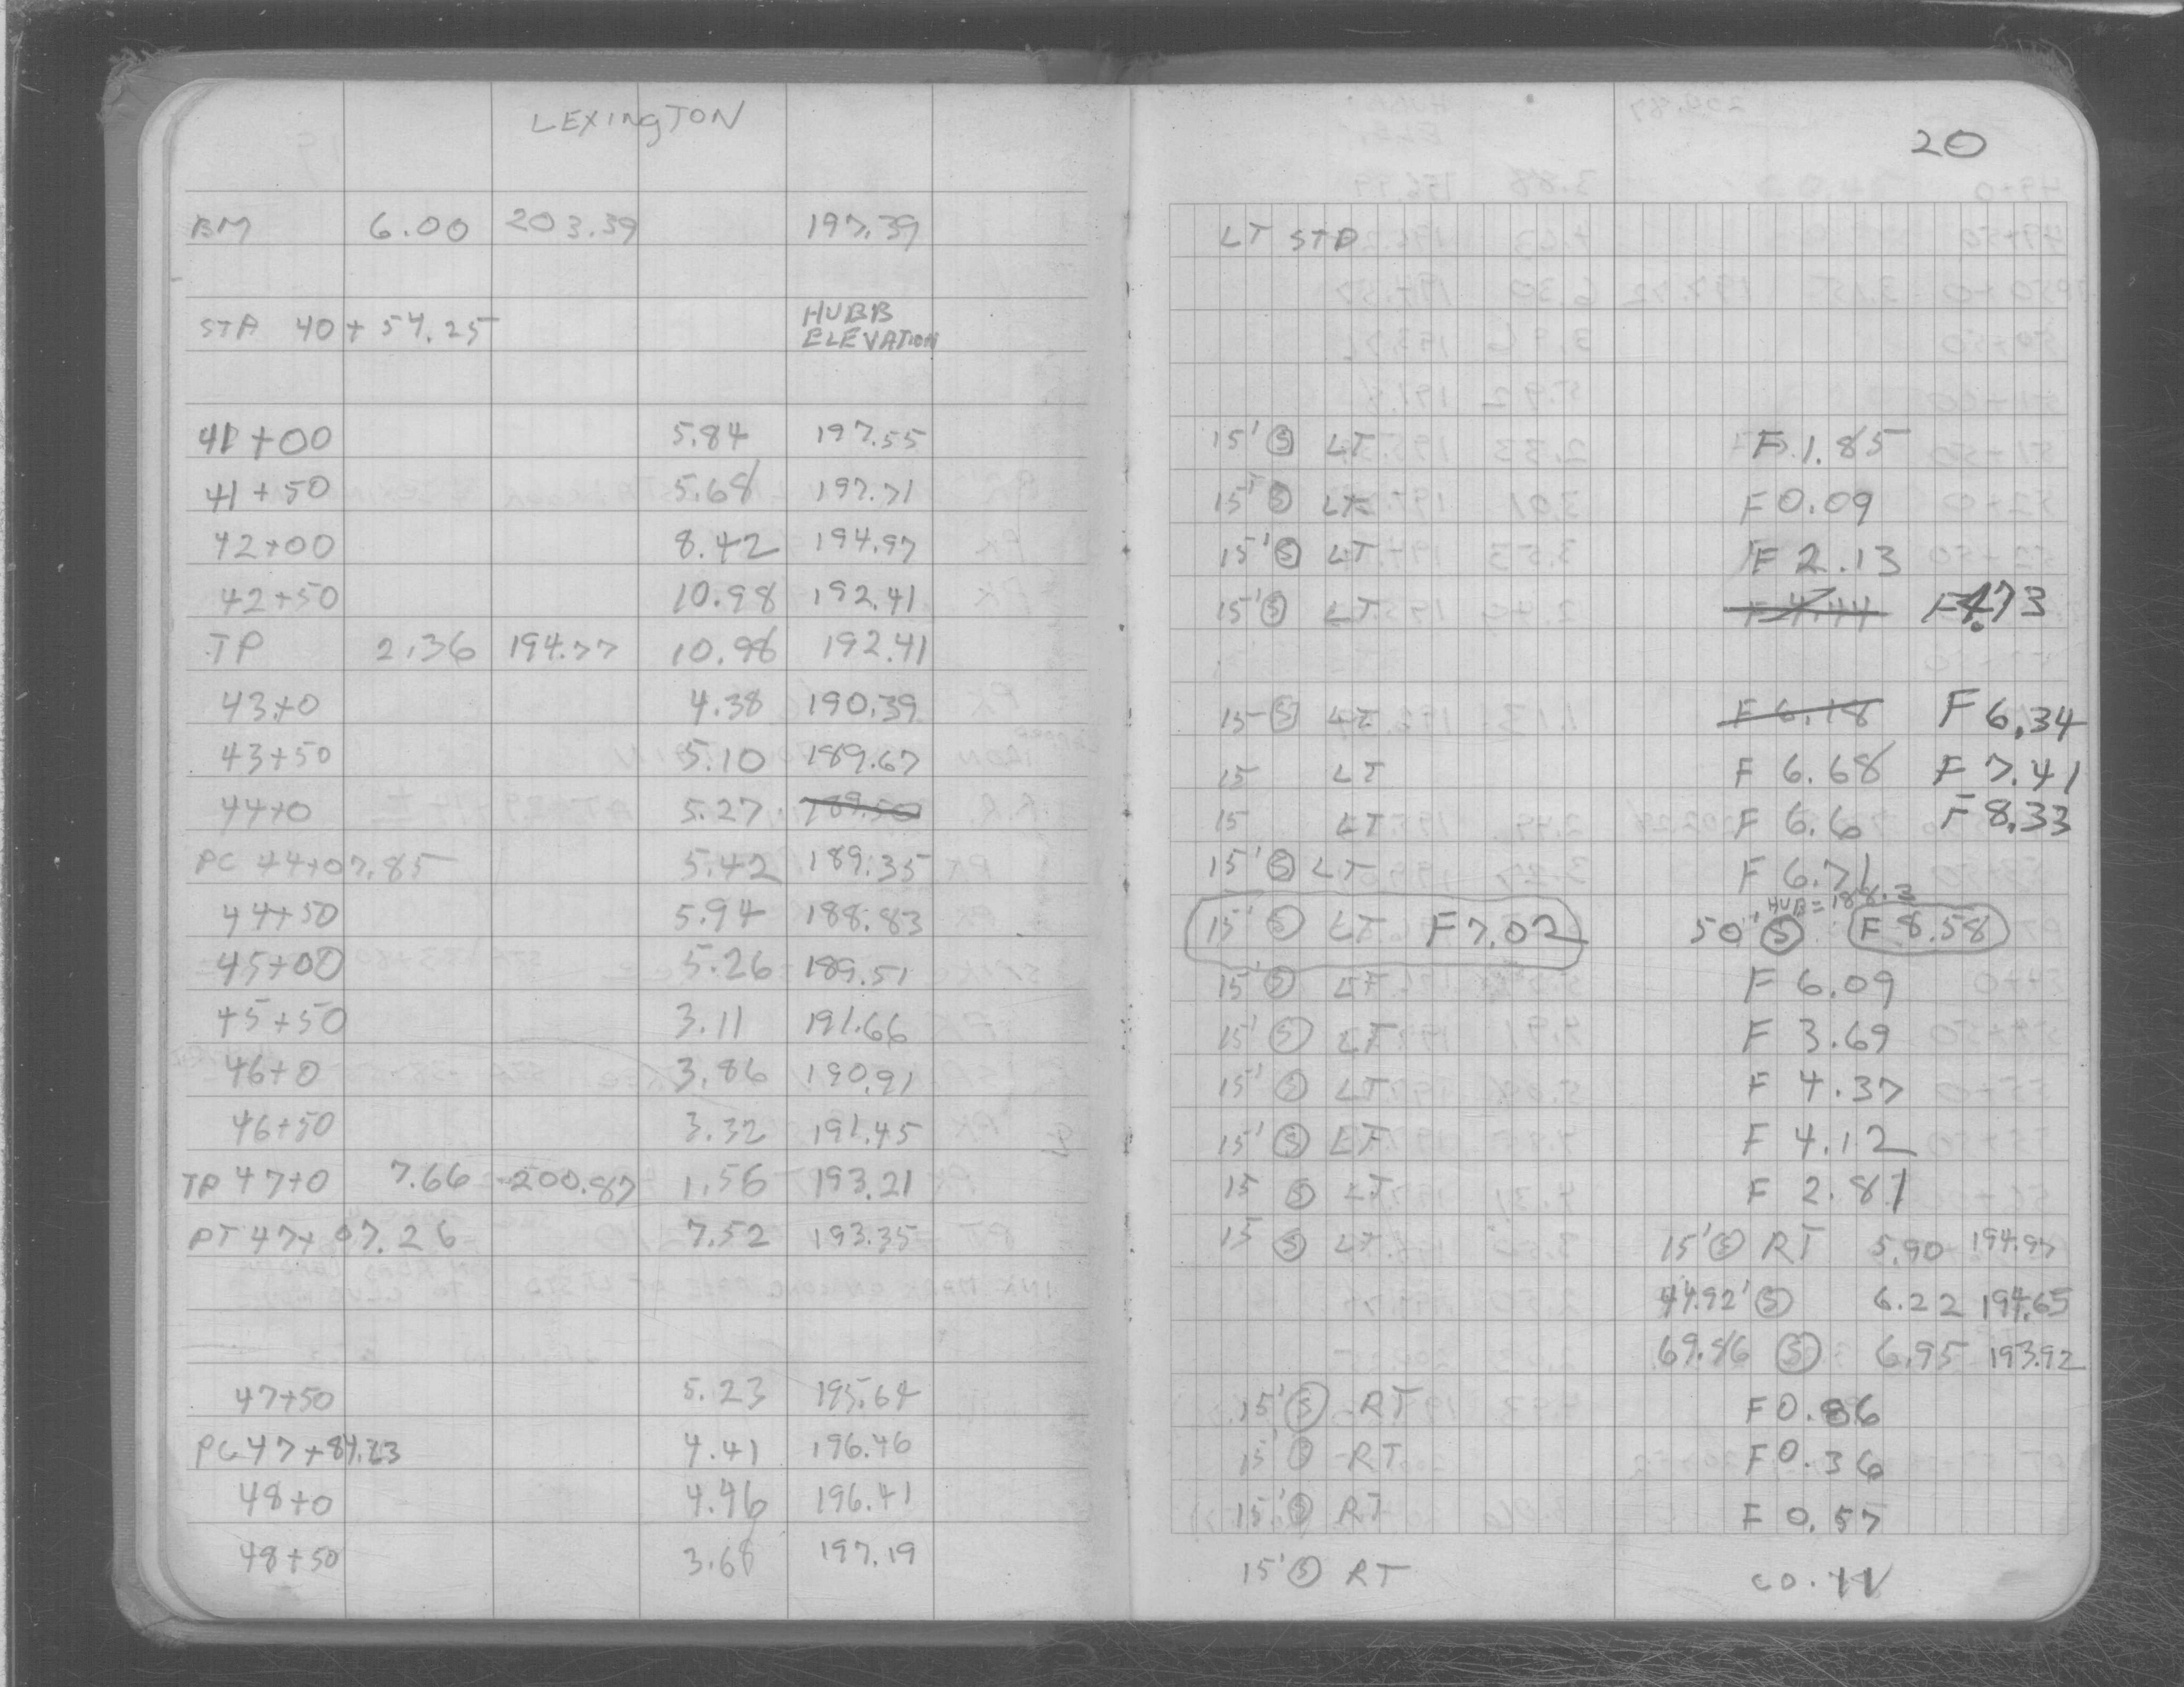 LEXINGTON
20
BM 6.00 203.39 197.39 LT STP
STA 40+54.25 HUBB ELEVATION
41+00 5.84 197.55 15' S LT F 1.85
41+50 5.68 197.71 15' S LT F 0.09
42+00 8.42 194.97 15' S LT F 2.13
42+50 10.98 192.41 15' S LT F 4.44 F 4.73
TP 2.36 194.77 10.98 192.41
43+0 4.38 190.39 15 S LT F 6.18 F 6.34
43+50 5.10 189.67 15 LT F 6.68 F 7.41
44+0 5.27 189.50 15 LT F 6.6 F 8.33
PC 44+07.85 5.42 189.35 15' S LT F 6.71
HUB = 188.3
44+50 5.94 188.83 15' S LT F 7.02 50' S F 8.58
45+00 5.26 189.51 15' S LT F 6.09
45+50 3.11 191.66 15' S LT F 3.69
46+0 3.86 190.91 15' S LT F 4.37
46+50 3.32 191.45 15' S LT F 4.12
TP 47+0 7.66 200.87 1.56 193.21 15 S LT F 2.81
PT 47+07.26 7.52 193.35 15 S LT 15' S RT 5.90 194.97
44.92' S 6.22 194.65
69.86 S 6.95 193.92
47+50 5.23 195.64 15' S RT F 0.86
PC 47+84.23 4.41 196.46 15' S RT F 0.36
48+0 4.46 196.41 15' S RT F 0.57
48+50 3.68 197.19 15' S RT